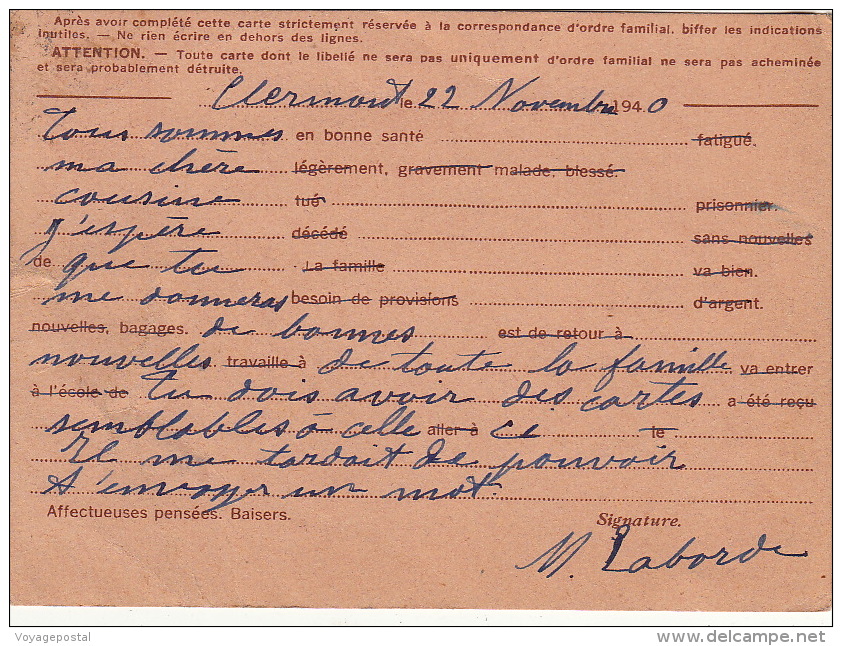 Après avoir complété cette carte strictement réservée à la correspondance d'ordre familial, biffer les indications
inutiles. — Ne rien écrire en dehors des lignes.
ATTENTION. — Toute carte dont le libellé ne sera pas uniquement d'ordre familial ne sera pas acheminée
et sera probablement détruite.
Clermont le 22 Novembre 1940
Tous sommes en bonne santé fatigué.
ma chère légèrement, gravement malade, blessé.
cousine tué prisonnier.
J'espère décédé sans nouvelles
de que tu La famille va bien.
me donneras besoin de provisions d'argent.
nouvelles, bagages. de bonnes est de retour à
nouvelles travaille à de toute la famille va entrer
à l'école de Tu dois avoir des cartes a été reçu
semblables à celle aller à ci le
Il me tardait de pouvoir
t'envoyer un mot.
Affectueuses pensées. Baisers. Signature.
M. Laborde
Voyagepostal
delcampe.net